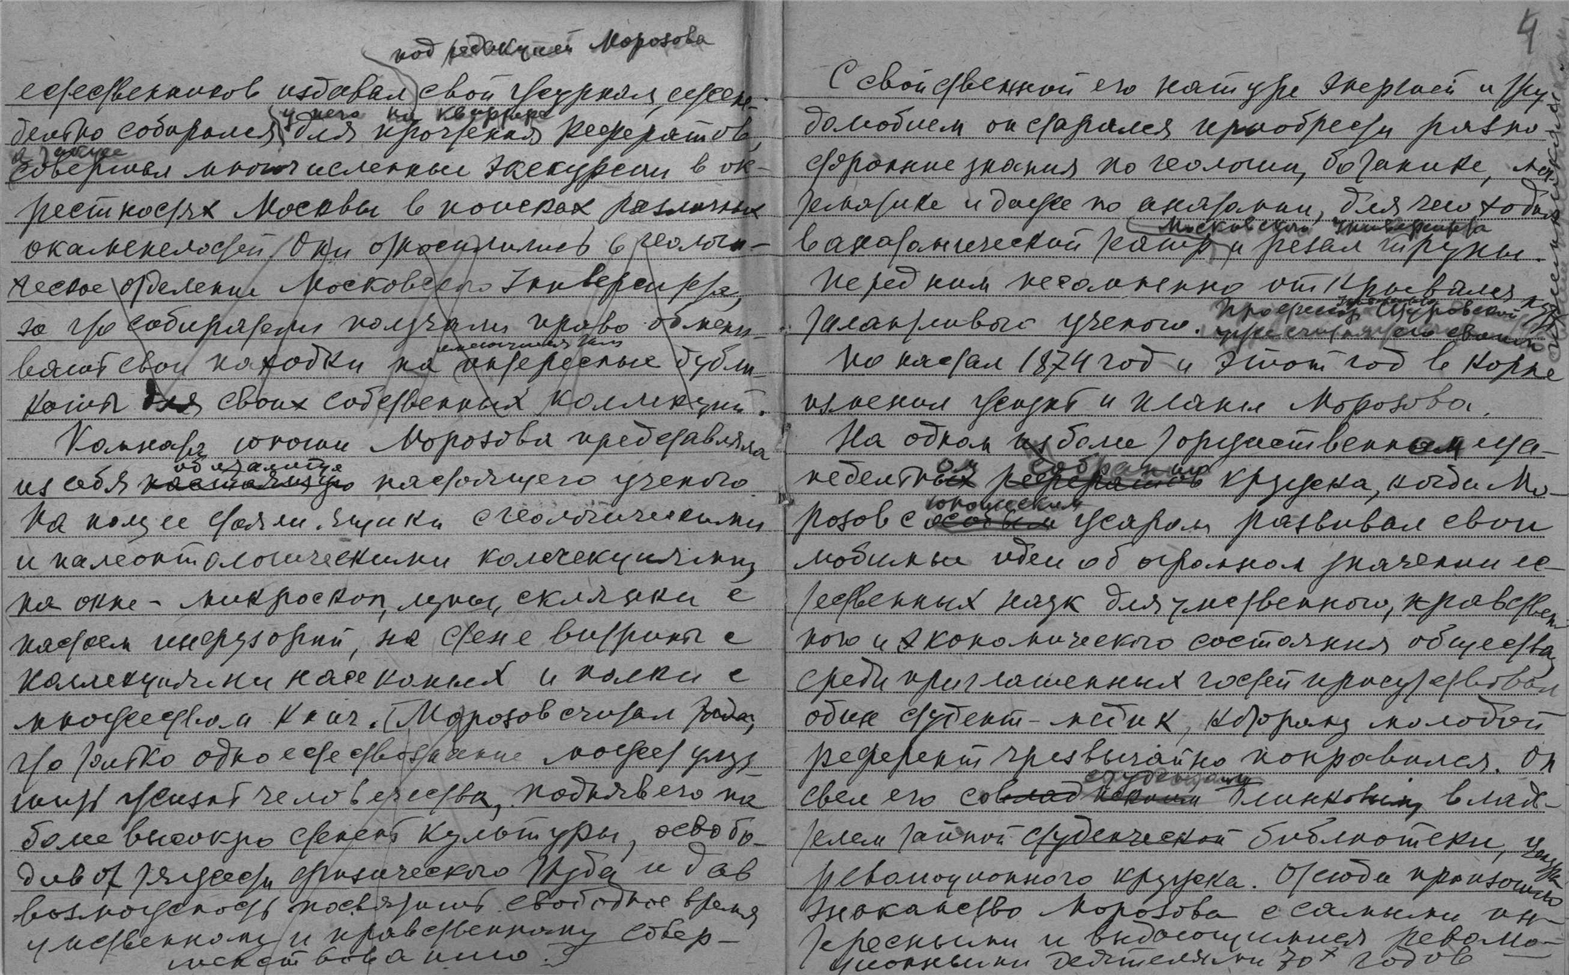 под редакцией Морозова
естествеников издавал свой журнал, ежене-
у него на квартире
дельно собирался для прочтения рефератов,
а также
совершал многочисленные экскурсии в ок-
рестностях Москвы в поисках различных
окаменелостей. Они относились в геологи-
ческое отделение Московского Университета,
за что собиратели получали право обмени-
вать свои находки на интересные дубли-
каты для своих собственных коллекций.
Комната юноши Морозова представляла
обиталище
из себя настоящего ученого
На полу ее стояли ящики с геологическими
и палеонтологическими коллекциями,
на окне - микроскоп, лупы, склянки с
настоем инфузорий, на стене витрины с
коллекциями насекомых и полки с
множеством книг. Морозов считал тогда,
что только одно естествознание может улуч-
шить жизнь человечества, подняв его на
более высокую степень культуры, освобо-
див от тяжести физического труда и дав
возможность посвятить свободное время
умственному и нравственному совер-
шенствованию.
4
С свойственной его натуре энергией и тру-
долюбием он старался приобрести разно-
сторонние знания по геологии, ботанике, мате-
матике и даже по анатомии, для чего ходил
Московского Университета
в анатомический театр и резал трупы.
Перед ним несомненно открывался путь
талантливого ученого. Профессор Щуровский
уже считал его своим
Но настал 1874 год и этот год в корне
изменил жизнь и планы Морозова.
На одном из более торжественных еже-
собраний
недельных рефератов кружка, когда Мо-
юношеским
розов с особым жаром развивал свои
любимые идеи об огромном значении ес-
тественных наук для умственного, нравствен-
ного и экономического состояния общества,
среди приглашенных гостей присутствовал
один студент-медик, которому молодой
референт чрезвычайно понравился. Он
студентами
свел его с Блинковым, влад-
телем тайной студенческой библиотеки,
революционного кружка. Отсюда произошло
знакомство Морозова с самыми ин-
тересными и выдающимися револю-
ционными деятелями 70х годов